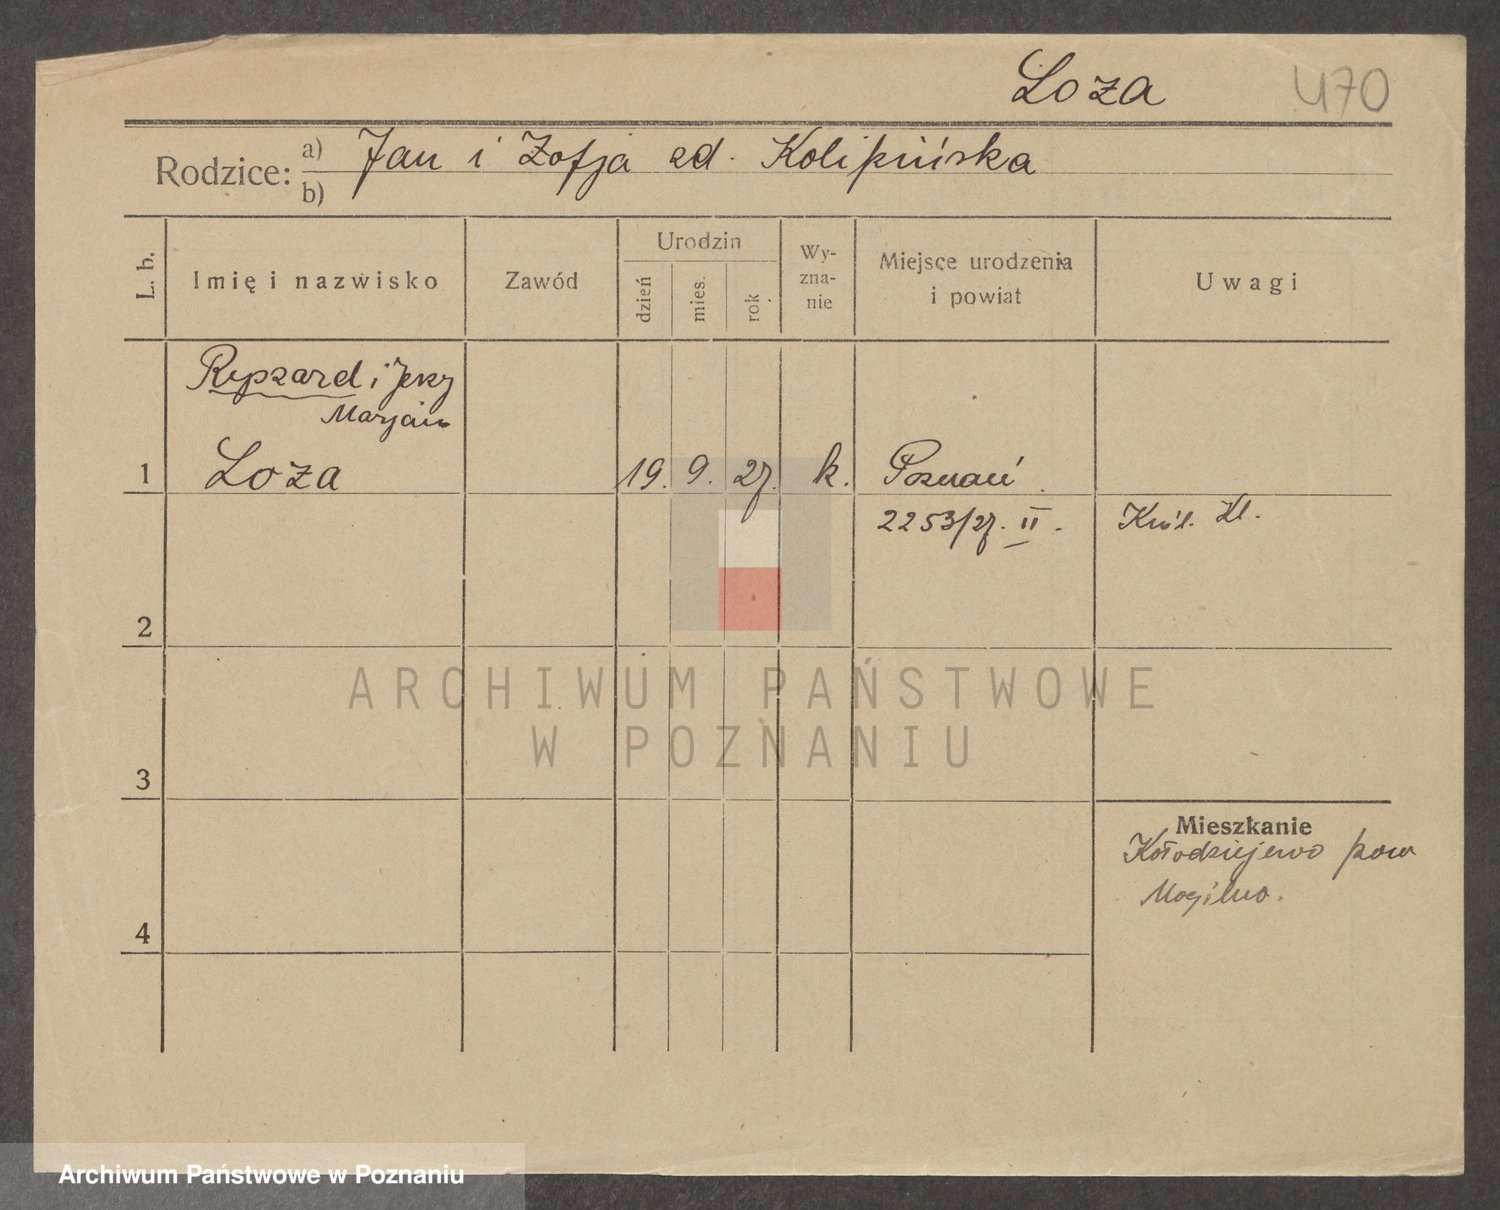 Loza 470
Rodzice: a) Jan i Zofja zd. Kolipińska
b)
L. b. Imię i nazwisko Zawód Urodzin dzień mies. rok Wy-zna-nie Miejsce urodzenia i powiat Uwagi
Ryszard i Jerzy
Marjan
1 Loza 19. 9. 27. k. Poznań
2253/27. II. Król. Kl.
2
ARCHIWUM PAŃSTWOWE
W POZNANIU
3
Mieszkanie
Kołodziejewo pow
Mogilno.
4
Archiwum Państwowe w Poznaniu